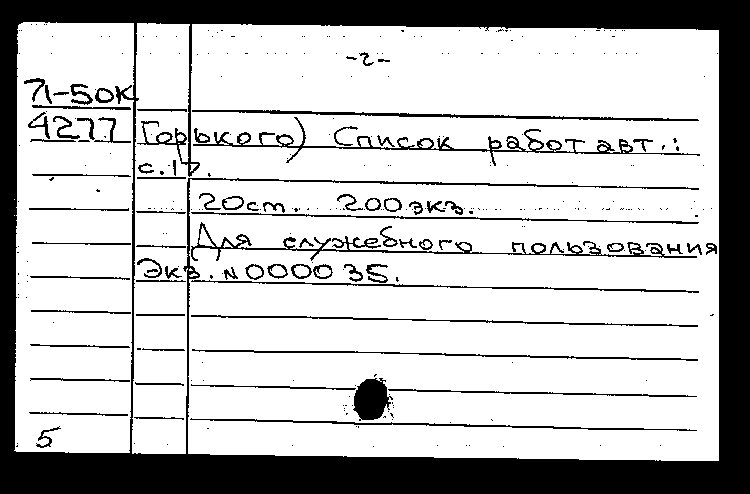 -2-
71-50К
4277 Горького) Список работ авт.:
с.17.
20ст. 200экз.
Для служебного пользования
Экз. N000035.
5